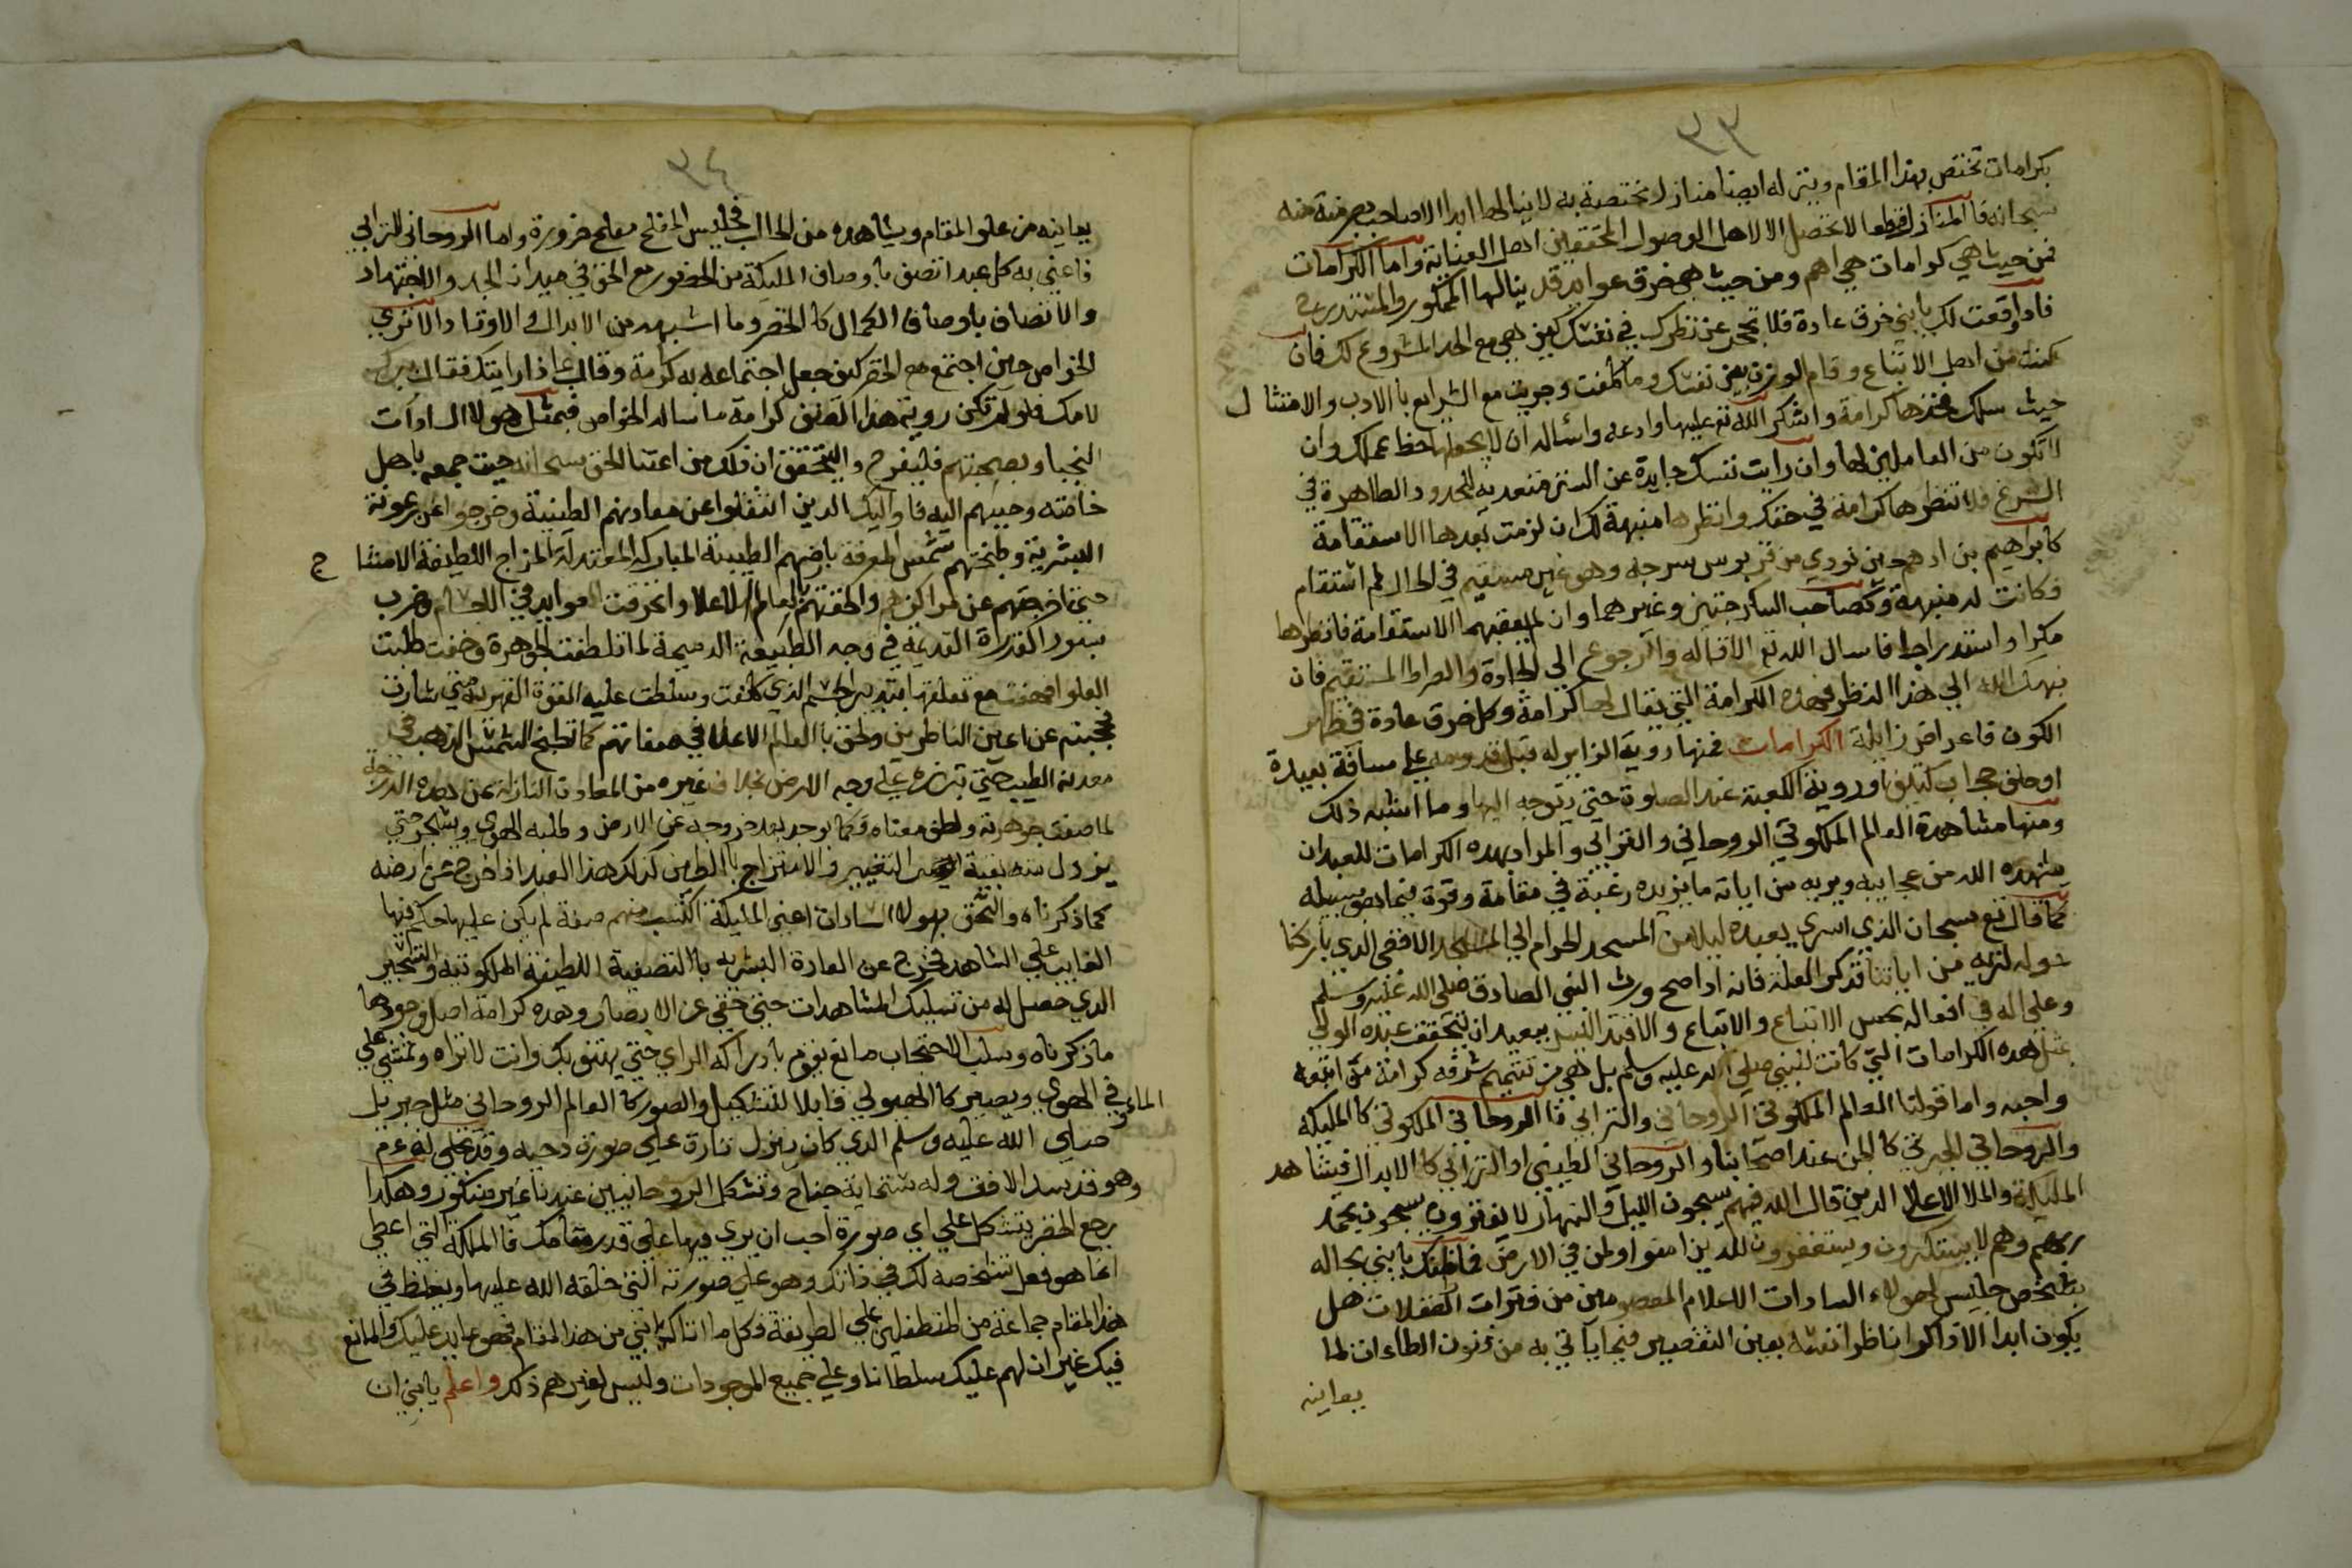 ٣٣
بكرامات تختص بهذا المقام وينزله ايضا منازل مختصة به لا ينالها ابدا الا صاحب معرفته منه
سبحانه فا المنازل قطعا لا تحصل الا لاهل الوصول المحققين اهل العناية واما الكرامات
فمن حيث هي كرامات هي لهم ومن حيث هي خرق عوايد قد ينالها الممكور والمستدرج
فاذا وقعت لك يا بني خرق عادة فلا تحجر عن نظرك في نفسك كيف هي مع الحد المشروع لك فان
كنت من اهل الاتباع وقام الوزن بين نفسك وما كلفت وجريت مع الشرايع با الادب والامتثال
حيث سلك فخذها كرامة واشكر الله تع عليها وادعه واساله ان لا يجعلها حظ عملك وان
لا تكون من العاملين لها وان رايت نفسك حايدة عن السنن متعدية للحدود الظاهرة في
الشرع فلا تنظرها كرامة في حقك وانظرها منبهة لك ان لزمت بعدها الاستقامة
كابراهيم بن ادهم حين نودي من قربوس سرجه وهو غير مستقيم في الحال ثم استقام
فكانت له منبهة وكصاحب السكرجتين وغيرهما وان لم يعقبهما الاستقامة فانظرها
مكرا واستدراجا فاسال الله تع الاقاله والرجوع الي الجادة والصراط المستقيم فان
نبهك الله الي هذا النظر فهذه الكرامة التي يقال لها كرامة وكل خرق عادة في ظهر
الكون قاعد اخر زايلة الكرامات فمنها روية الزاير له قبل قدومه علي مسافة بعيدة
او خلف حجاب كثيف او روية الكعبة عند الصلوة حتي يتوجه اليها وما اشبه ذلك
ومنها مشاهدة العالم الملكوتي الروحاني والترابي والمراد بهذه الكرامات للعبد ان
يشهده الله من عجايبه ويريه من اياته ما يزيده رغبة في مقامة وقوة فيما هو بسبيله
كما قال تع سبحان الذي اسري بعبده ليلا من المسجد الحرام الي المسجد الاقصي الذي باركنا
حوله لنريه من اياتنا فذكر العلة فانه اذا صح ورث النبي الصادق صلي الله عليه وسلم
وعلي اله في افعاله بحسن الاتباع والاتباع والاقتدا فليس ببعيد ان يتحقق عبده المولي
بمثل هذه الكرامات التي كانت للنبي صلي الله عليه وسلم بل هي من تتميم شرفه كرامة من اتبعه
واجبه واما قولنا العالم الملكوتي الروحاني والترابي فا الروحاني الملكوتي كا المليكة
والروحاني الجبرتي كا الجن عند اصحابنا والروحاني الطيني او الترابي كا الابدال فيشاهد
المليكة والملا الاعلا الذين قال الله فيهم يسبحون الليل والنهار لا يفترون يسبحون بحمد
ربهم وهم لا يستكبرون ويستغفرون للذين امنوا ولمن في الارض فما ظنك يا بني بحاله
شخص جليس لهولاء السادات الاعلام المعصومين من فترات الغفلات هل
يكون ابدا الا ذاكرا ناظرا نفسه بعين التقصير فيما ياتي به من فنون الطاعات لما
يعاينه
٣٤
يعاينه من علو المقام ويشاهده من الحال فجليس المفلح مفلح ضرورة واما الروحاني الترابي
فاعني به كل عبد اتصف با وصاف المليكة من الحضور مع الحق في ميدان الجد والاجتهاد
والاتصاف باوصاف الكمال كا الخضر وما اشبهه من الابدال والاوتاد الا تري
الخواص حين اجتمع مع الخضر كيف جعل اجتماعه به كرامة وقال بماذا رايتك فقال ببرك
لامك فلو لم تكن روية هذا كرامة ما ساله الخواص فبمثل هولا السادات
النجبا وبصحبتهم فليفرح وليتحقق ان ذلك من اعتنا الحق سبحانه حيث جمعه باهل
خاصته وحببهم اليه فاوليك الذين انتقلوا عن معادنهم الطينية وخرجوا عن رعونة
البشرية وطبختهم شمس المعرفة بارضهم الطيبة المباركة المعتدلة المزاج اللطيفة الامتشاج
حتي اخرجتهم عن مراكزهم والحقتهم بالعالم الاعلا وانخرقت العوايد في اللحام وضرب
بسور القدرة القديمة في وجه الطبيعة الدميمة لما تلطفت الجوهرة وخفت طلبت
العلو فصفت مع تعلقها بتدبير الجسم الذي كلفت وسلطت عليه القوة القهرية حتي سارت
تحجبهم عن اعين الناظرين ولحق با العالم الاعلا في صفاتهم كما تطبخ الشمس الذهب في
معدنه الطيب حتي تبرزه علي وجه الارض بخلاف غيره من المعادن النازلة عن هذه الدرجة
لما صفت جوهريته ولطف معناه وكما يوجد بعد خروجه عن الارض وطلبه الهوي ويتحجر حتي
يزول منه بقية التغيير والامتزاج با الطين كذلك هذا العبد اذا خرج من ارضه
كما ذكرناه والتحق بهولا السادات اعني المليكة اكتسب منهم صفة لم يكن عليها حكم فيها
الغايب علي الشاهد فخرج عن العادة البشرية با التصفية اللطيفة الملكوتية والتحجير
الذي حصل له من تسليك المشاهدات حتي خفي عن الابصار وهذه كرامة اصل وجودها
ما ذكرناه وسلب الاحتجاب مانع يقوم بادراكه الراي حتي يهتف بك وانت لا تراه وتمشي علي
الماء وفي الهوي ويصير كا الهيولي قابلا للتشكيل والصور كا العالم الروحاني مثل جبريل
صلي الله عليه وسلم الذي كان ينزل تارة علي صورة دحيه وقد تجلي له عم
وهو قد سد الافق وله ستماية جناح وتشكل الروحانيين عندنا غير منكور وهكذا
يرجع الخضر يتشكل علي اي صورة احب ان يري فيها علي قدر مقامك فا المملكة التي اعطي
انما هو فعل تشخصه لك في ذاتك وهو علي صورته التي خلقه الله عليها ويغلط في
هذا المقام جماعة من المتطفلين علي الطريقة وكل ما اتاك يا بني من هذا المقام فهو عايد عليك والمانع
فيك غير ان لهم عليك سلطانا وعلي جميع الموجودات وليس لغيرهم ذلك واعلم يا بني ان